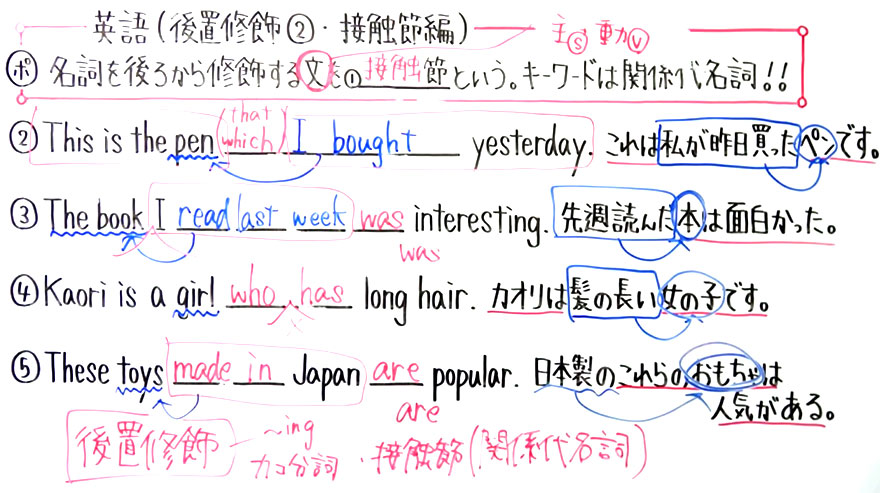 英語(後置修飾②・接触節編) 主Ⓢ 動Ⓥ
ポ 名詞を後ろから修飾する文を①接触節という。キーワードは関係代名詞!!
that
②This is the pen (which) I bought yesterday. これは私が昨日買ったペンです。
③The book I read last week was interesting. 先週読んだ本は面白かった。
was
④Kaori is a girl who has long hair. カオリは髪の長い女の子です。
⑤These toys made in Japan are popular. 日本製のこれらのおもちゃは
are 人気がある。
後置修飾 ~ing
カコ分詞・接触節(関係代名詞)